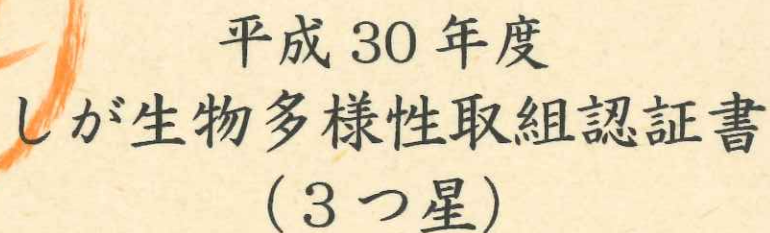 平成30年度
しが生物多様性取組認証書
（3つ星）